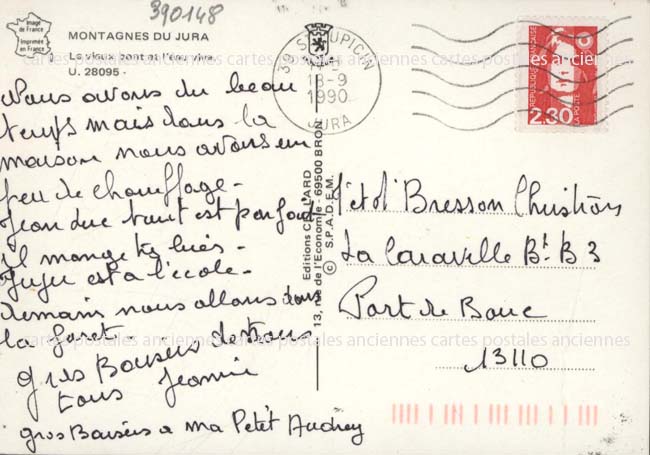 390148
Image
de France
Imprimée
en France
MONTAGNES DU JURA
Le vieux pont et l'eau vive
U. 28095 -
cartes postales anciennes cartes postales anciennes cartes postales anciennes
Nous avons du beau
temps mais dans la
maison nous avons un
peu de chauffage -
Jean Luc tout est parfait
Il mange très bien -
est à l'école -
Demain nous allons dans
la foret -
gros Baisers de nous
tous Jeannie
gros Baisers a ma Petit Audrey
39 ST LUPICIN
18-9
1990
JURA
REPUBLIQUE FRANÇAISE
2,30
LA POSTE
Editions CELLARD
13, rue de l'Economie - 69500 BRON
© S.P.A.D.E.M.
Bresson Christian
La Caravelle Bt. B 3
Port de Bouc
13110
cartes postales anciennes cartes postales anciennes cartes postales anciennes